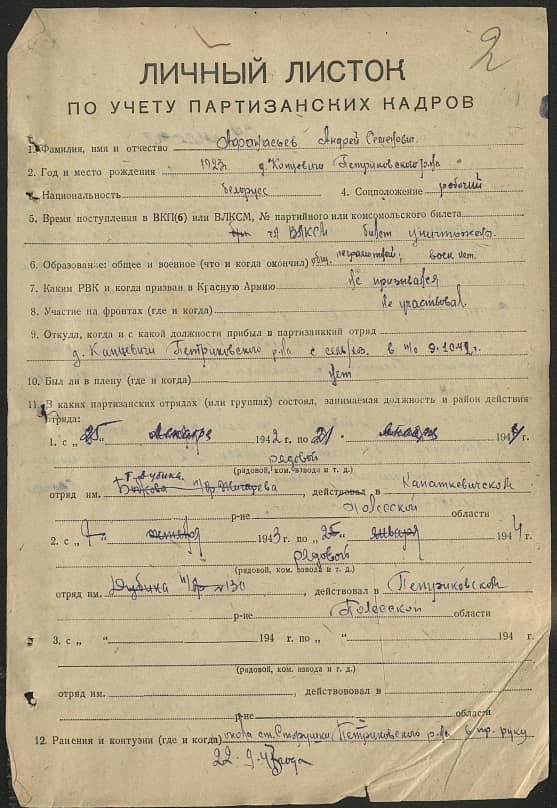 2
ЛИЧНЫЙ ЛИСТОК
ПО УЧЕТУ ПАРТИЗАНСКИХ КАДРОВ
1. Фамилия, имя и отчество Афанасьев Андрей Семенович
2. Год и место рождения 1923г. д. Копцевичи Петриковского р-на
3. Национальность белорусс 4. Соцположение рабочий
5. Время поступления в ВКП(б) или ВЛКСМ, № партийного или комсомольского билета
чл ВЛКСМ билет уничтожен.
6. Образование: общее и военное (что и когда окончил) общ. неграмотный; воен. нет.
7. Каким РВК и когда призван в Красную Армию не призывался
8. Участие на фронтах (где и когда) не участвовал.
9. Откуда, когда и с какой должности прибыл в партизанский отряд
д. Капцевичи Петриковского р-на с сель/хоз. в п/о 9.10.42г.
10. Был ли в плену (где и когда) нет
11. В каких партизанских отрядах (или группах) состоял, занимаемая должность и район действия
отряда:
1. с „25“ 1942 г. по „21“ 1944
рядовой
(рядовой, ком. взвода и т. д.)
отряд им. , действовал в Капаткевичском
р-не Полесской области
2. с „ “ 1943 г. по „25“ января 1944 г.
рядовой
(рядовой, ком. взвода и т. д.)
отряд им. Дубина п/бр №130 , действовал в Петриковском
р-не Полесской области
3. с „ “ 194 г. по „ “ 194 г.
(рядовой, ком. взвода и т. д.)
отряд им. , действовал в
р-не области
12. Ранения и контузии (где и когда) около ст. Старушки Петриковского р-на в пр. руку
22.9.43 года